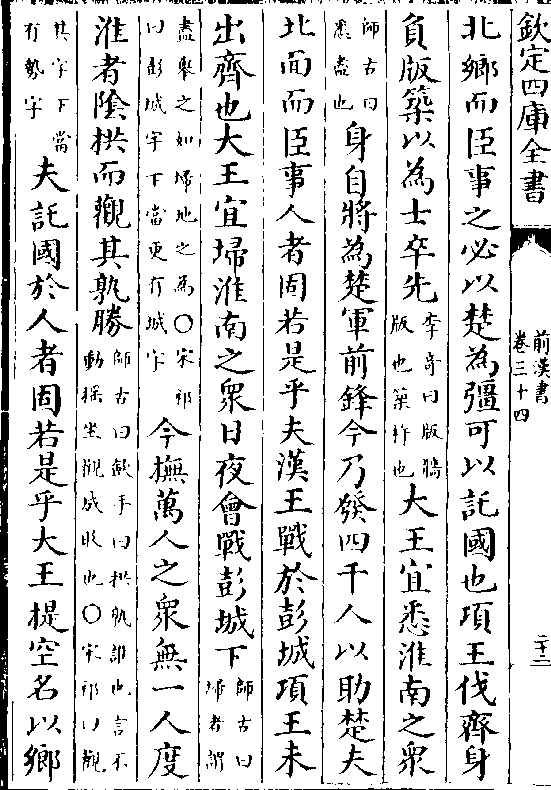 欽定四庫全書
前漢書
卷三十四
二十二
北鄉而臣事之必以楚為彊可以託國也項王伐齊身
負版築以為士卒先李奇曰版牆版也築杵也大王宜悉淮南之衆
師古曰悉盡也身自將為楚軍前鋒今乃發四千人以助楚夫
北面而臣事人者固若是乎夫漢王戰於彭城項王未
出齊也大王宜埽淮南之衆日夜會戰彭城下師古曰埽者謂
盡舉之如埽地之為○宋祁曰彭城字下當更有城字今撫萬人之衆無一人度
淮者陰拱而觀其孰勝師古曰斂手曰拱孰誰也言不動搖坐觀成敗也○宋祁曰觀
其字下當有勢字夫託國於人者固若是乎大王提空名以鄉